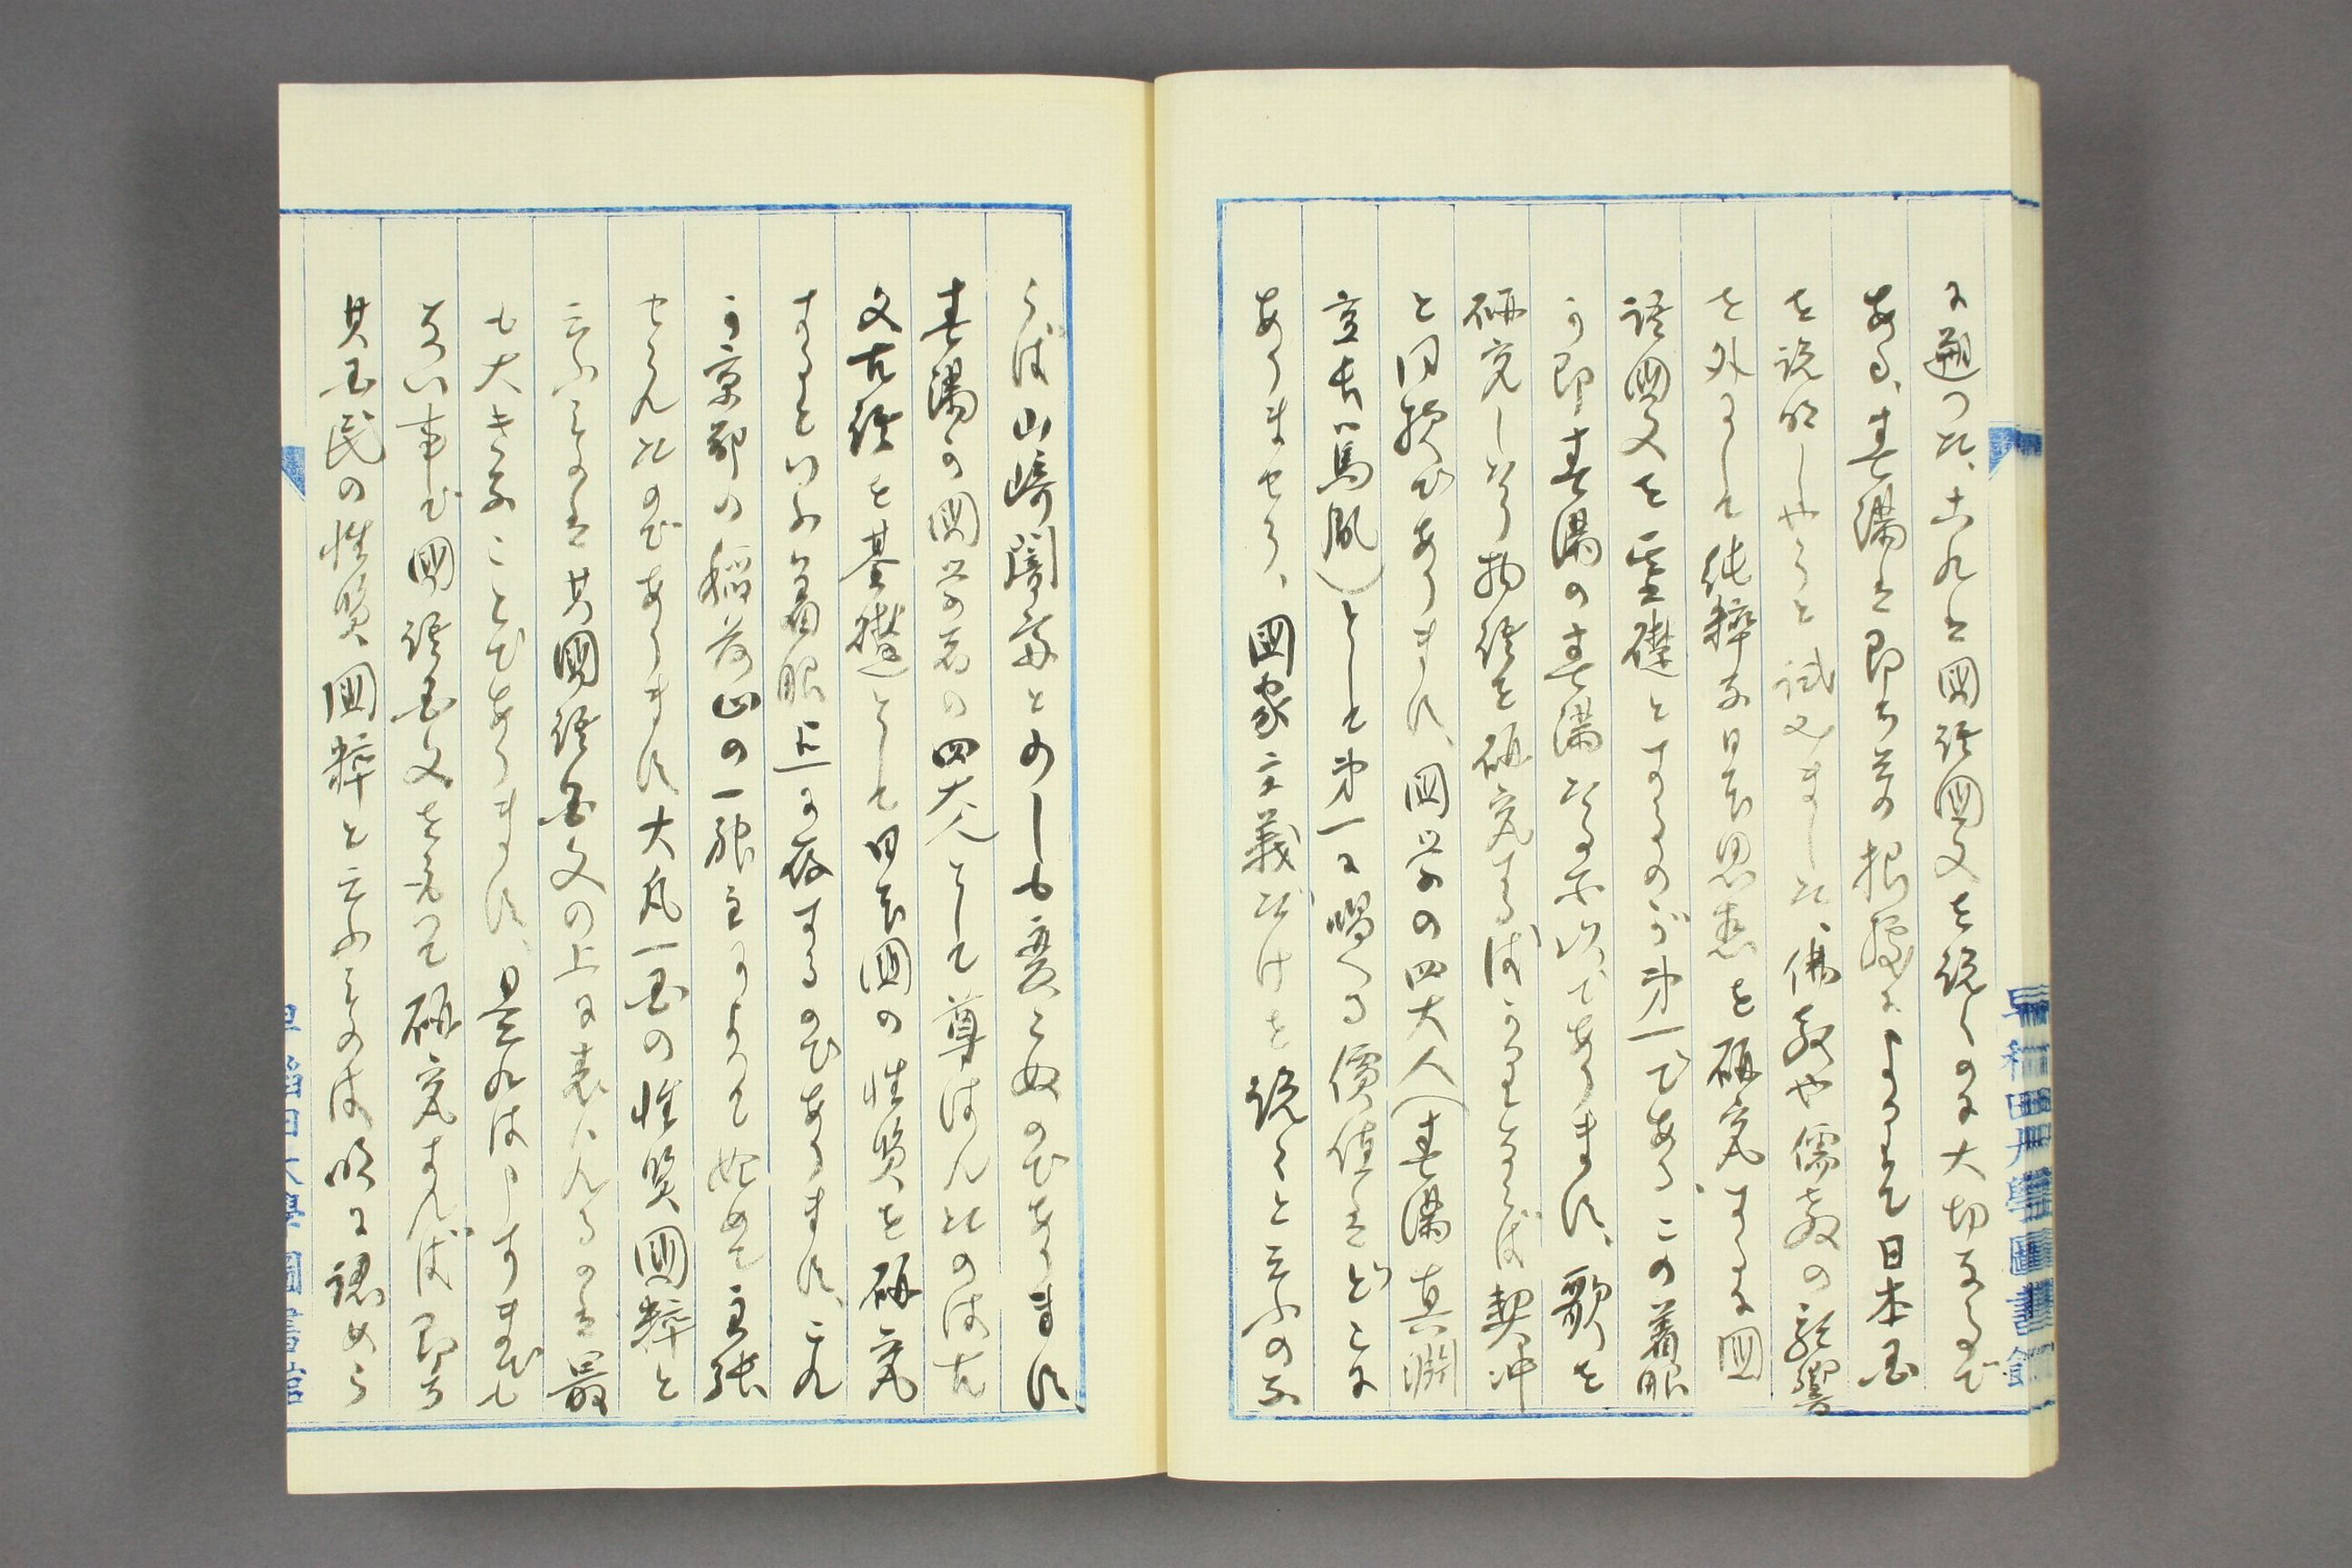 に遡つた、古凡と國語國文を説くのは大切なるで
ある、春滿は即ち其の根據によりて日本國
を説明しやうと試みました、佛教や儒教の影響
を外にして純粹な日本思想を研究するに國
語國文を基礎とするのが第一である、この着眼
が即春滿の春滿たる所以であります、歌を
研究し物語を研究するばかりならば契沖
と同樣であります、國學の四大人(春滿真淵
宣長篤胤)として第一に唱へる價値はどこに
ありませう、國家主義だけを説くと云ふのな
らば山崎闇齋と少しも変こぬのであります
春滿が國学者の四大人として尊ばれたのは古
文古語を基礎として日本國の性質を研究
するといふ着眼点に存するのであります、これ
が京都の稲荷山の一祠官によりて始めて主張
せられたのであります大凡一国の性質國粹と
云ふものは其國語国文の上に表はれるのは最
も大きなことであります、是れは申すまでも
ない事で國語国文を以て研究すれば即ち
其国民の性質國粹と云ふものは明に認めら
早稲田大學圖書館